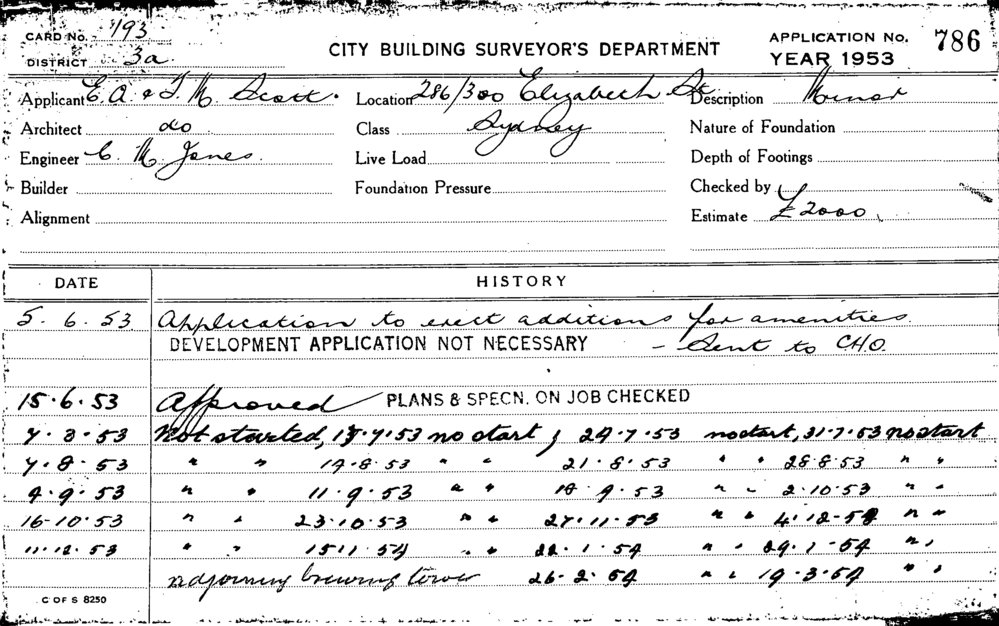 CARD No. 193
DISTRICT 3a.
CITY BUILDING SURVEYOR'S DEPARTMENT
APPLICATION No. 786
YEAR 1953
Applicant E. A. & F. M. Scott. Location 286/300 Elizabeth St Description Minor
Architect do Class Sydney Nature of Foundation
Engineer C. M. Jones. Live Load Depth of Footings
Builder Foundation Pressure Checked by
Alignment Estimate £2000.
DATE HISTORY
5. 6. 53 Application to erect additions for amenities
DEVELOPMENT APPLICATION NOT NECESSARY - Sent to CHO.
15.6.53 Approved PLANS & SPECN. ON JOB CHECKED
not started, 17.7.53 no start, 24.7.53 no start, 31.7.53 no start
7.8.53 " " 14.8.53 " " 21.8.53 " " 28.8.53 " "
4.9.53 " " 11.9.53 " " 18.9.53 " " 2.10.53 " "
16-10.53 " " 23.10.53 " " 27.11.53 " " 4.12. " "
11.12.53 " " " " 22.1.54 " " 29.1.54 " "
adjoining brewing tower 26.2.54 " " 19.3.54 " "
C OF S 8250